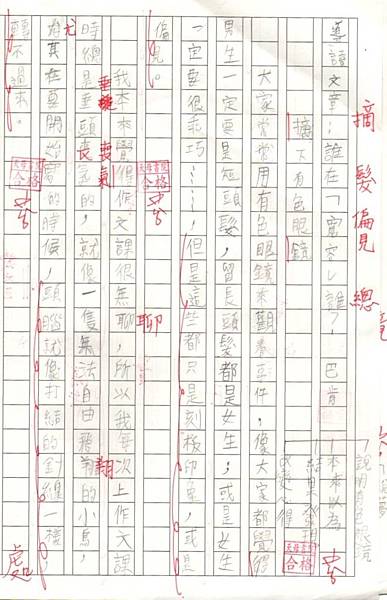 摘 髮 偏見 總
善讀文章：誰在「
」誰？
摘下有色眼鏡
大家常常用有色眼鏡來觀看事件，像大家都覺得
男生一定要是短頭髮，留長頭髮都是女生；或是女生
一定要很乖巧……但是這些都只是刻板印象，或是
偏見。
我本來覺得作文課很無聊，所以我每次上作文課
時總是垂頭喪氣的，就像一隻無法自由飛翔的小鳥，
尤其在要開始寫的時候，頭腦就像打結的針線一樣，
轉不過來。
本來以為
結果發現
說明有色眼鏡
聊
翔
喪氣
合格
合格
合格